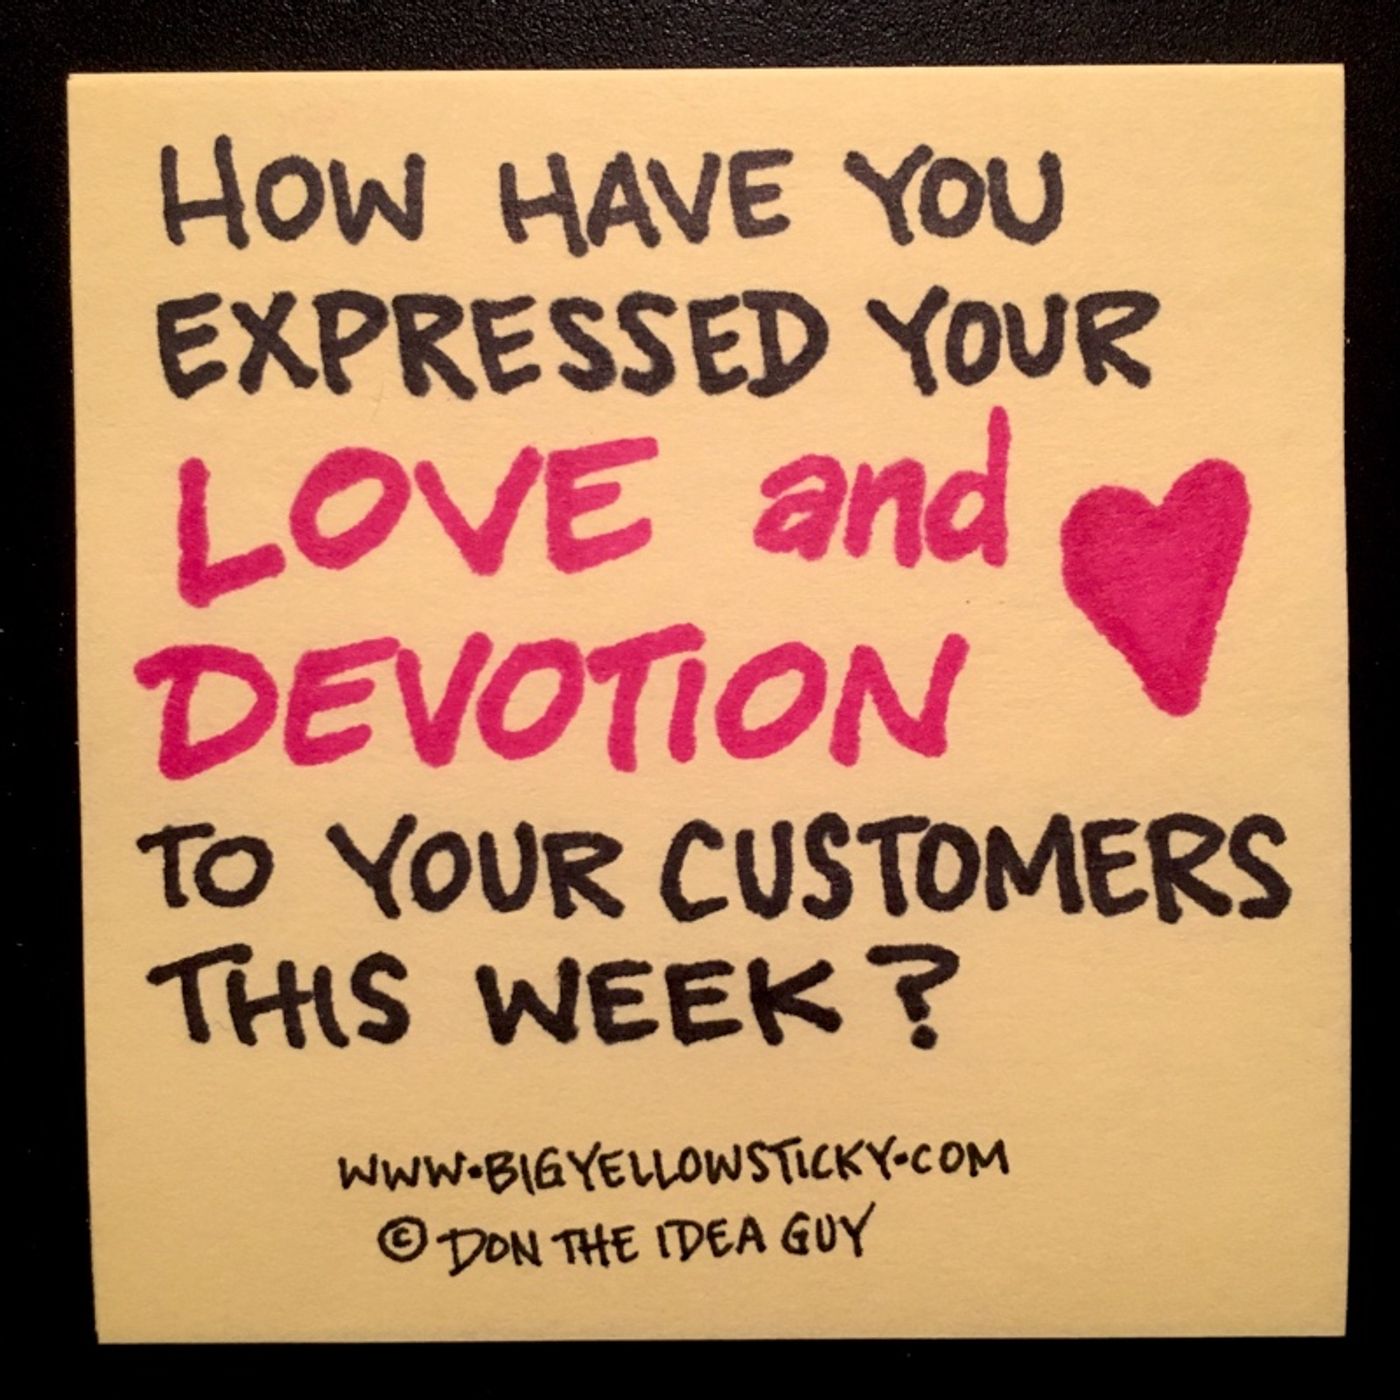 HOW HAVE YOU
EXPRESSED YOUR
LOVE and
DEVOTION
TO YOUR CUSTOMERS
THIS WEEK?
WWW.BIGYELLOWSTICKY.COM
© DON THE IDEA GUY